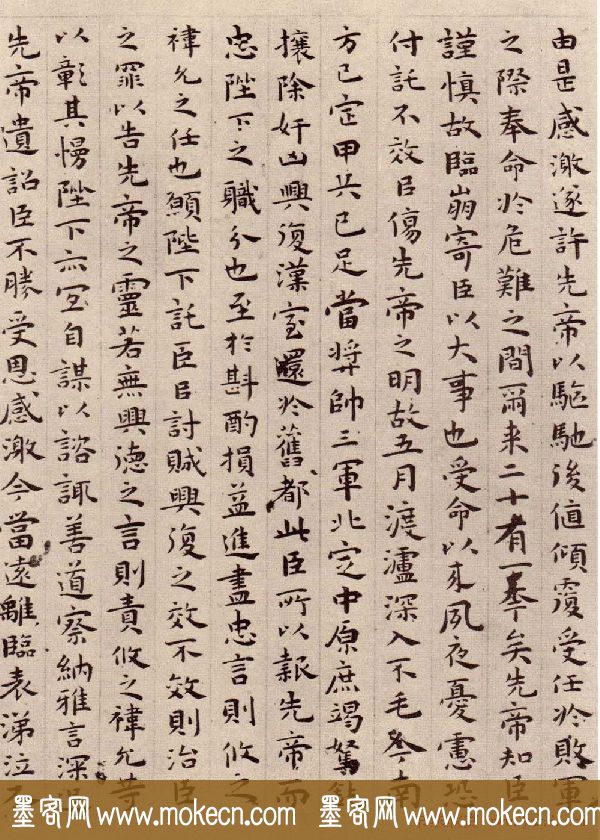 由是感激遂許先帝以驅馳後值傾覆受任於敗軍
之際奉命於危難之間爾来二十有一年矣先帝知臣
謹慎故臨崩寄臣以大事也受命以来夙夜憂慮恐
付託不效臣傷先帝之明故五月渡瀘深入不毛今南
方已定甲兵已足當獎帥三軍北定中原庶竭駑
攘除奸凶興復漢室還於舊都此臣所以報先帝而
忠陛下之職分也至於斟酌損益進盡忠言則攸之
禕允之任也願陛下託臣臣討賊興復之效不效則治臣
之罪以告先帝之靈若無興德之言則責攸之禕允等
以彰其慢陛下亦宜自謀以諮諏善道察納雅言深
先帝遺詔臣不勝受恩感激今當遠離臨表涕泣
墨客网 www.mokecn.com 墨客网 www.mokecn.com 墨客网 www.mokecn.com